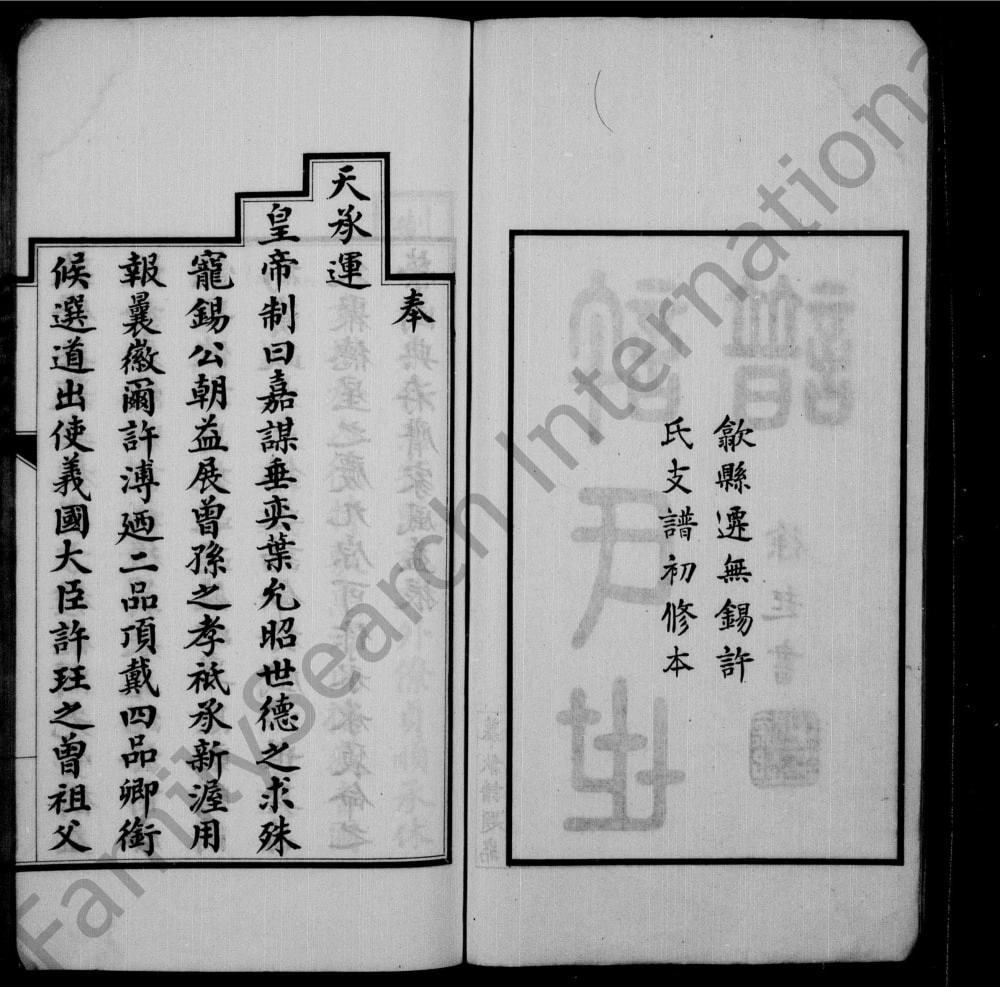 歙縣遷無錫許
氏支譜初修本
奉
天承運
皇帝制曰嘉謀垂奕葉允昭世德之求殊
寵錫公朝益展曾孫之孝祇承新渥用
報曩徽爾許溥廼二品頂戴四品卿銜
候選道出使義國大臣許珏之曾祖父
FamilySearch International